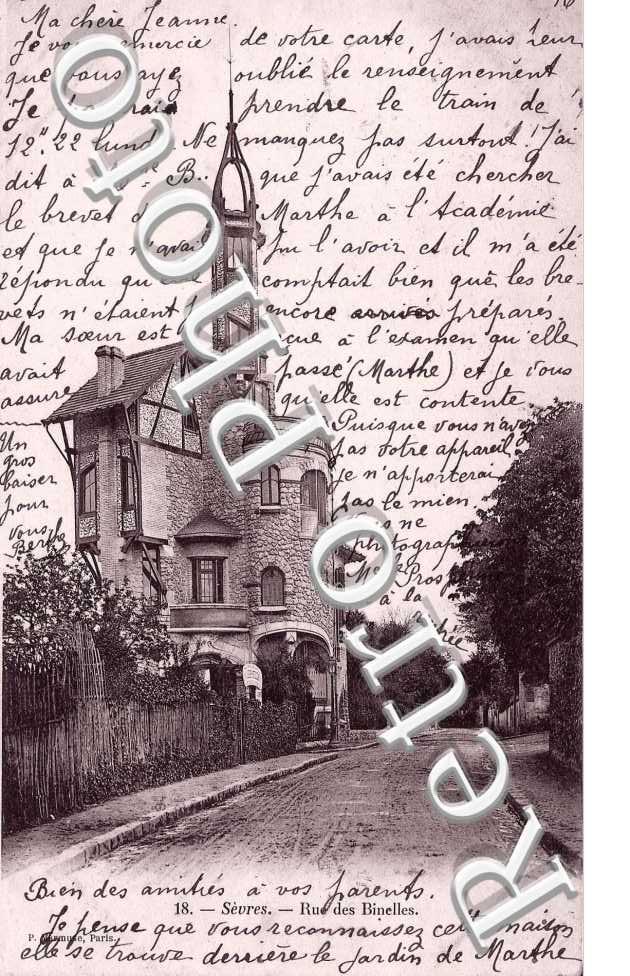 Ma chère Jeanne.
Je vous remercie de votre carte, j'avais peur
que vous ayez oublié le renseignement
Je prendre le train de
12h.22 lundi. Ne manquez pas surtout! J'ai
dit à B.. que j'avais été chercher
le brevet de Marthe à l'Académie
et que je n'avais pu l'avoir et il m'a été
répondu qu' comptait bien que les bre-
vets n'étaient encore arrivés préparés.
Ma sœur est reçue à l'examen qu'elle
avait passé (Marthe) et je vous
assure qu'elle est contente
Puisque vous n'avez
pas votre appareil
je n'apporterai
pas le mien
ne
photographierons
Prosp
à la
Un
gros
baiser
pour
vous
Berthe
Bien des amitiés à vos parents.
18. — Sèvres. — Rue des Binelles.
Je pense que vous reconnaissez cette maison
P. Paris.
elle se trouve derrière le jardin de Marthe
PhotoPhotoRetro